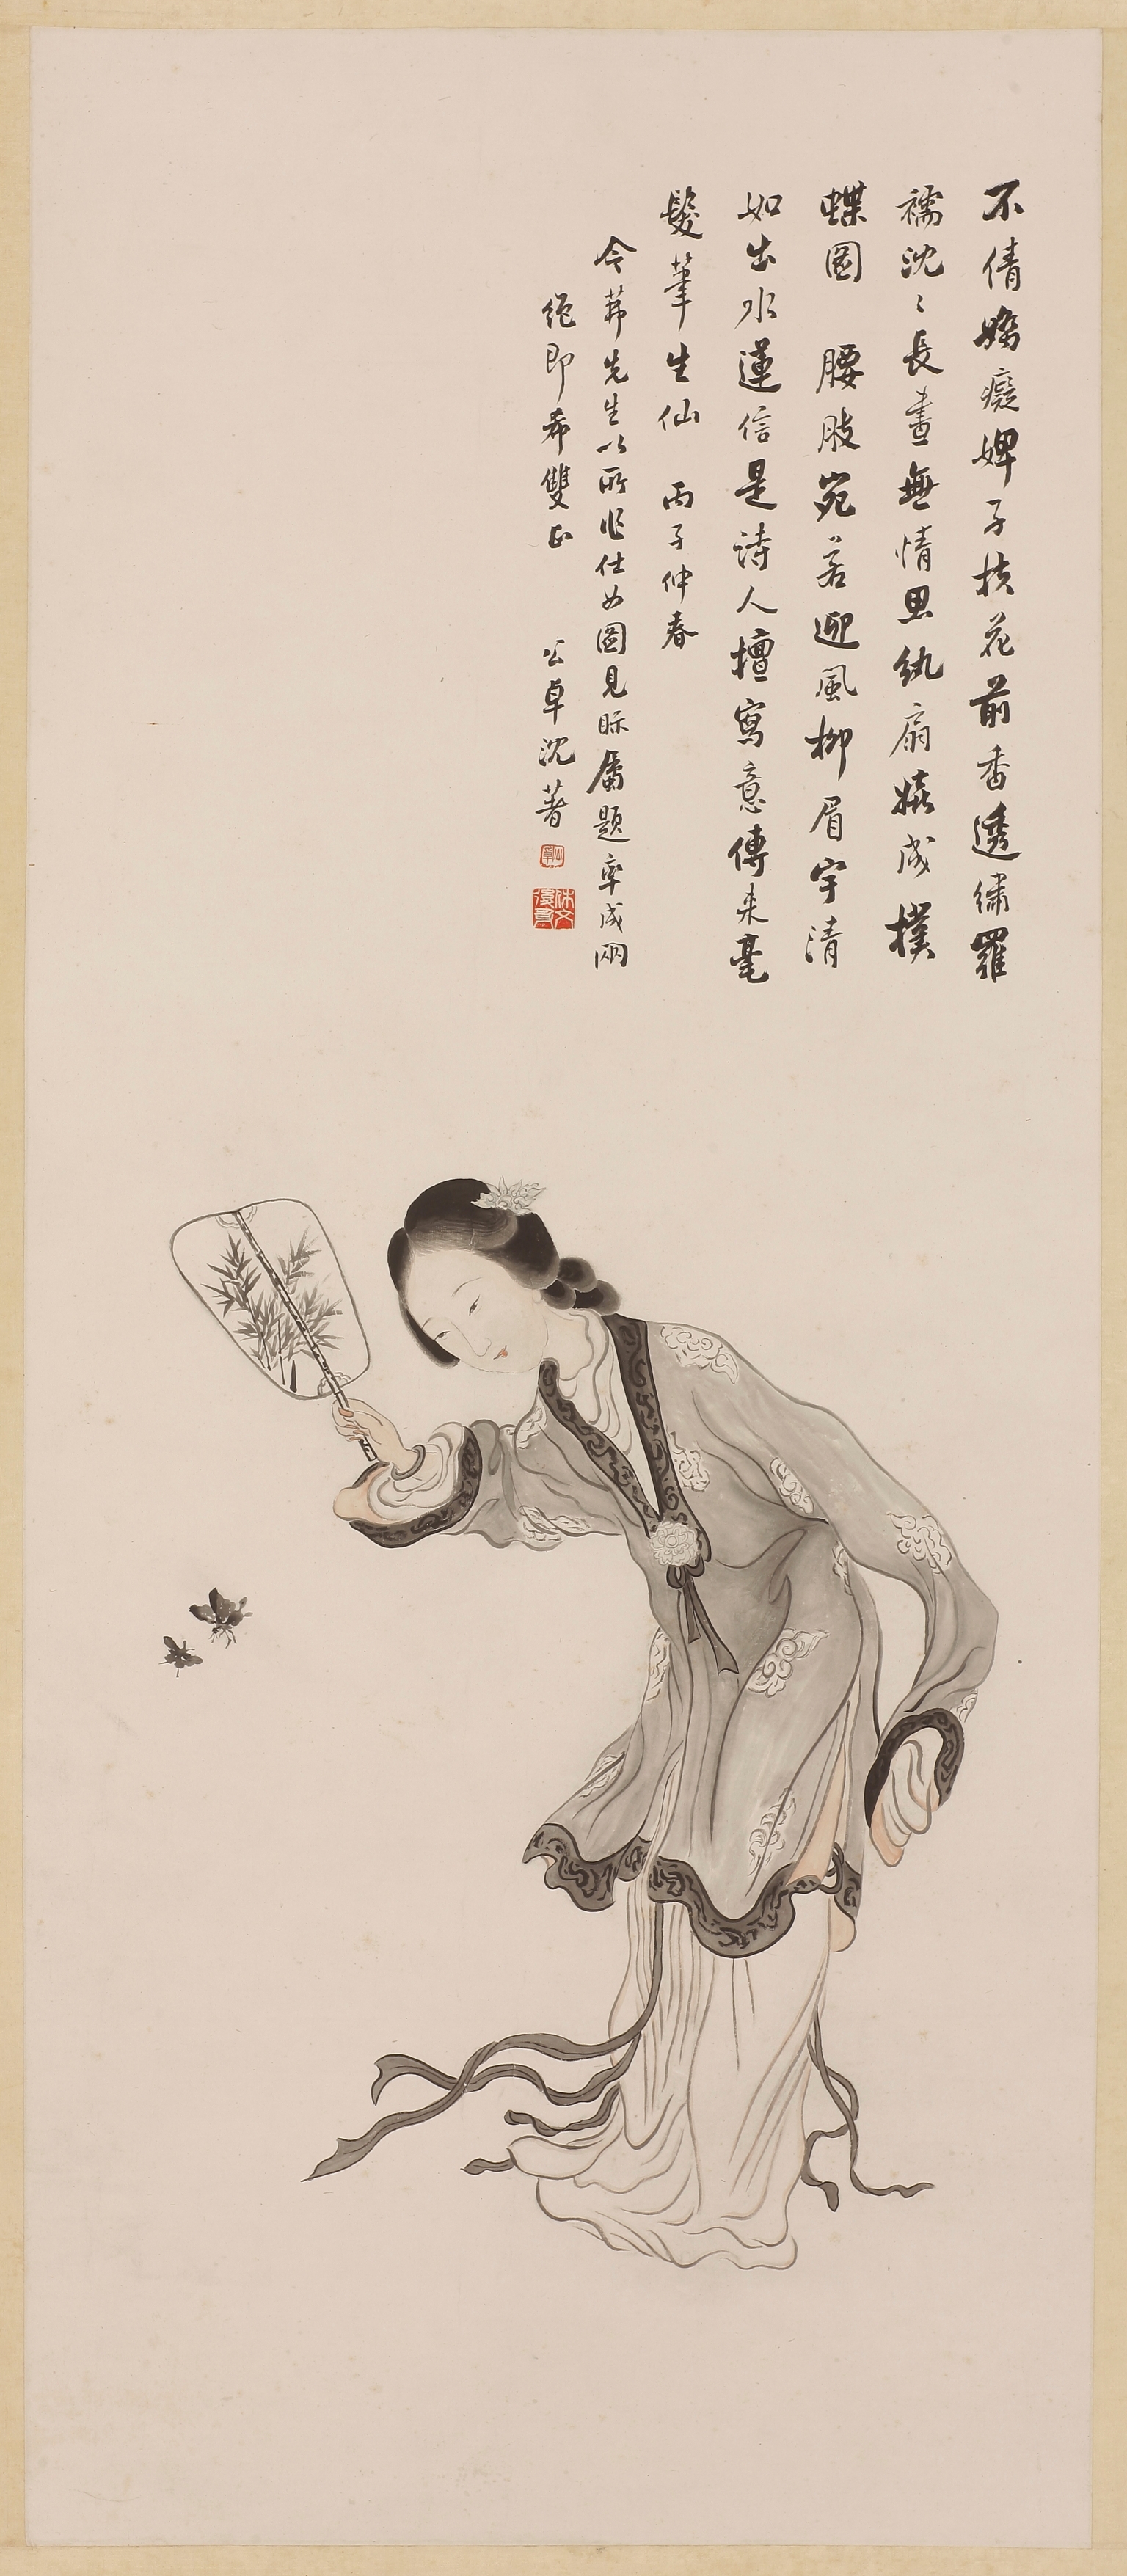 不倩嬌癡婢子扶花前香透繡羅
襦沈〻長晝無情思紈扇嬉成撲
蝶圖 腰肢宛若迎風柳眉宇清
如出水蓮信是詩人擅寫意傳來毫
髮筆生仙 丙子仲春
令茀先生以所作仕女圖見眎屬題率成兩
絕即希雙正 公卓沈著